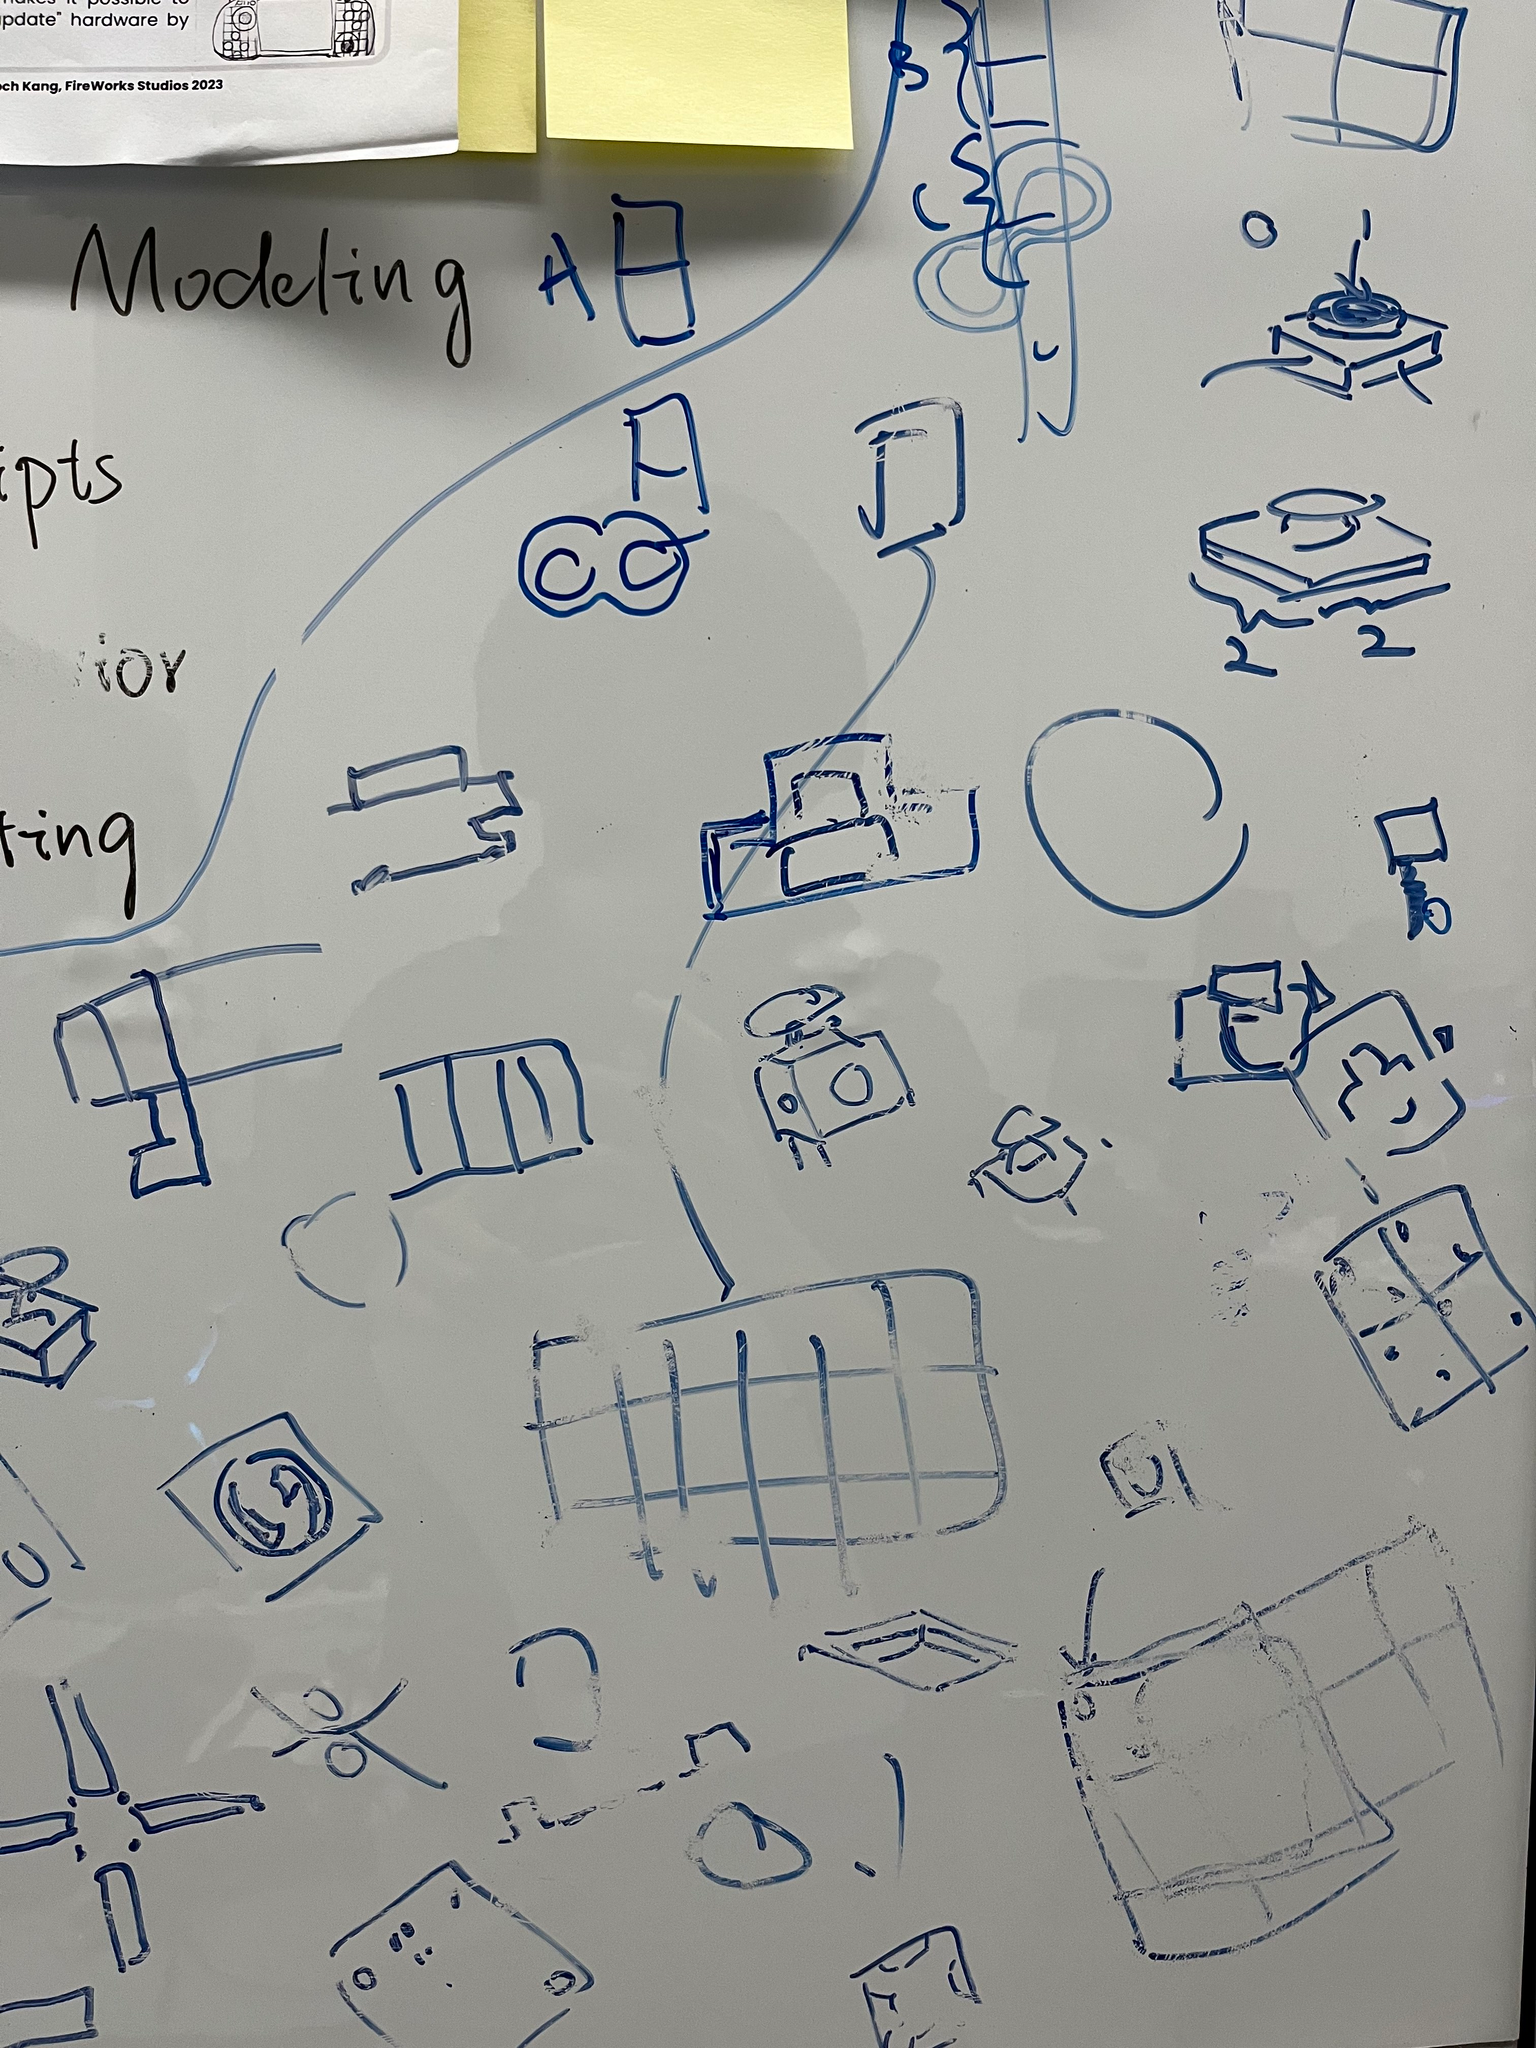 makes it possible to
update" hardware by
och Kang, FireWorks Studios 2023
B
C
Modeling
A
ipts
2 2
ior
ting